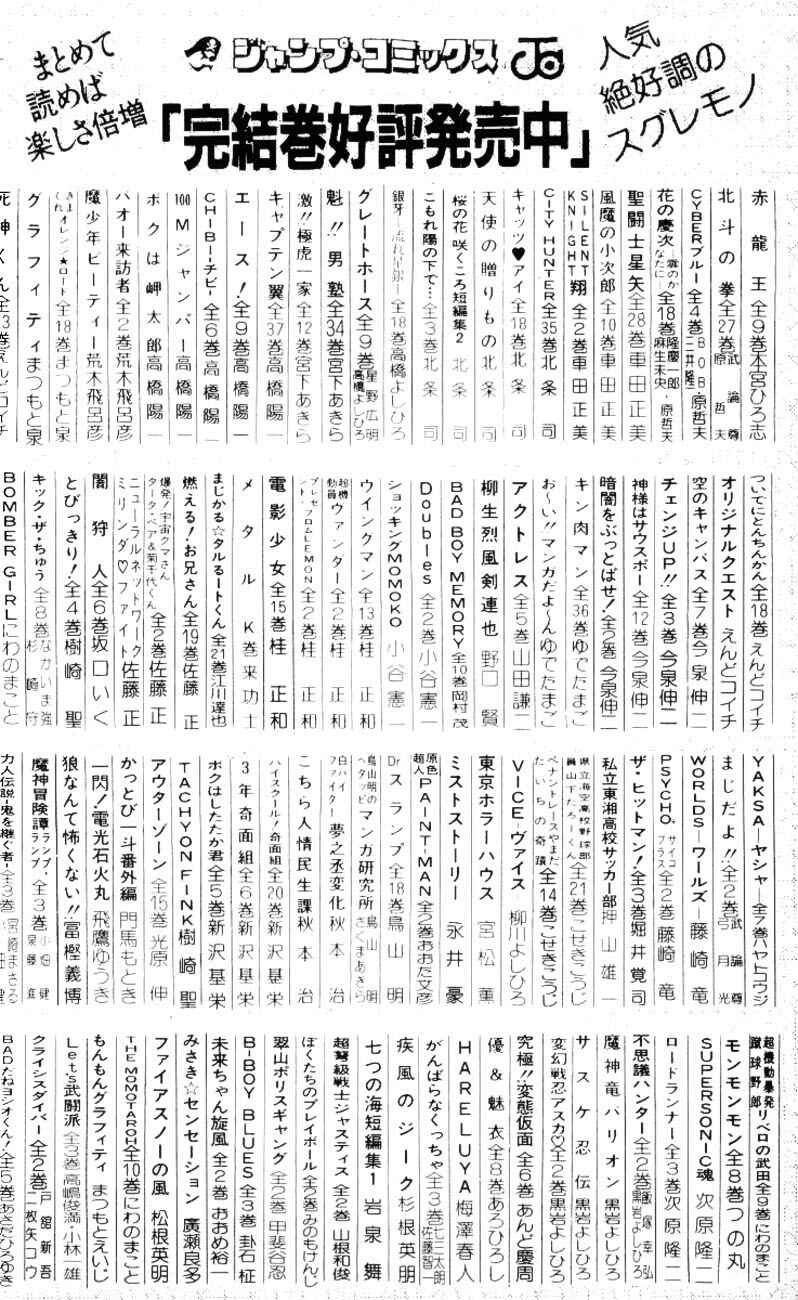 まとめて
読めば
楽しさ倍増
ジャンプ・コミックス
人気
絶好調の
スグレモノ
「完結巻好評発売中」
赤龍王 全9巻 本宮ひろ志
北斗の拳 全27巻 武論尊 原哲夫
CYBERブルー 全4巻 BOB・原哲夫 三井隆一
花の慶次 雲のかなたに 全18巻 隆慶一郎・原哲夫 麻生未央
聖闘士星矢 全28巻 車田正美
風魔の小次郎 全10巻 車田正美
SILENT KNIGHT翔 全2巻 車田正美
CITY HUNTER 全35巻 北条司
キャッツ♥アイ 全18巻 北条司
天使の贈りもの 北条司
桜の花 咲くころ 短編集2 北条司
こもれ陽の下で… 全3巻 北条司
銀牙―流れ星 銀― 全18巻 高橋よしひろ
グレートホース 全9巻 星野広明 高橋よしひろ
魁!!男塾 全34巻 宮下あきら
激!!極虎一家 全12巻 宮下あきら
キャプテン翼 全37巻 高橋陽一
エース! 全9巻 高橋陽一
CHIBI―チビ― 全6巻 高橋陽一
100Mジャンパー 高橋陽一
ボクは岬太郎 高橋陽一
バオー来訪者 全2巻 荒木飛呂彦
魔少年ビーティー 荒木飛呂彦
きまぐれオレンジ★ロード 全18巻 まつもと泉
グラフィティ まつもと泉
死神くん 全13巻 えんどコイチ
ついでにとんちんかん 全18巻 えんどコイチ
オリジナルクエスト えんどコイチ
空のキャンバス 全7巻 今泉伸二
チェンジUP!! 全3巻 今泉伸二
神様はサウスポー 全12巻 今泉伸二
暗闇をぶっとばせ! 全2巻 今泉伸二
キン肉マン 全36巻 ゆでたまご
お~い!!マンガだよ~ん ゆでたまご
アクトレス 全5巻 山田謙二
柳生烈風剣連也 野口賢
BAD BOY MEMORY 全10巻 岡村茂
Doubles 全2巻 小谷憲一
ショッキングMOMOKO 小谷憲一
ウイングマン 全13巻 桂正和
超機動員ヴァンダー 全2巻 桂正和
プレゼント・フロムLEMON 全2巻 桂正和
電影少女 全15巻 桂正和
メタルK 巻来功士
まじかる☆タルるートくん 全21巻 江川達也
燃える!お兄さん 全19巻 佐藤正
爆発!宇宙クマさん タータ・ベア&菊千代くん 全2巻 佐藤正
ニューラルネットワーク ミリンダ♡ファイト 佐藤正
闇狩人 全6巻 坂口いく
とびっきり! 全4巻 樹崎聖
キック・ザ・ちゅう 全8巻 なかいま強 杉崎守
BOMBER GIRL にわのまこと
YAKSA―ヤシャ― 全7巻 ハヤトコウジ
まじだよ!! 全2巻 武論尊 弓月光
WORLDS―ワールズ― 藤崎竜
PSYCHO+ サイコプラス 全2巻 藤崎竜
ザ・ヒットマン! 全3巻 堀井覚司
私立東湘高校サッカー部 押山雄一
県立海空高校野球部員山下たろーくん 全21巻 こせきこうじ
ペナントレースやまだたいちの奇蹟 全14巻 こせきこうじ
VICE・ヴァイス 柳川よしひろ
東京ホラーハウス 宮松薫
ミストストーリー 永井豪
原色超人PAINT・MAN 全2巻 おおた文彦
Drスランプ 全18巻 鳥山明
鳥山明のヘタッピマンガ研究所 鳥山明 さくまあきら
白バイファイター夢之丞変化 秋本治
こちら人情民生課 秋本治
ハイスクール!奇面組 全20巻 新沢基栄
3年奇面組 全6巻 新沢基栄
ボクはしたたか君 全5巻 新沢基栄
TACHYON FINK 樹崎聖
アウターゾーン 全15巻 光原伸
かっとび一斗番外編 門馬もとき
一閃!電光石火丸 飛鷹ゆうき
狼なんて怖くない!! 冨樫義博
魔神冒険譚ランプ・ランプ 全3巻 小畑健 泉藤進
力人伝説―鬼を継ぐ者― 全3巻 宮崎まさる 小畑健
超機動暴発蹴球野郎 リベロの武田 全9巻 にわのまこと
モンモンモン 全8巻 つの丸
SUPERSONIC魂 次原隆二
ロードランナー 全3巻 次原隆二
不思議ハンター 全2巻 飯塚幸弘 黒岩よしひろ
魔神竜バリオン 黒岩よしひろ
サスケ忍伝 黒岩よしひろ
変幻戦忍アスカ♡ 全2巻 黒岩よしひろ
究極!!変態仮面 全6巻 あんど慶周
優&魅衣 全8巻 あろひろし
HARELUYA 梅澤春人
がんばらなくっちゃ 全3巻 七三太朗 佐藤智一
疾風のジーク 杉根英朋
七つの海 短編集1 岩泉舞
超弩級戦士ジャスティス 全2巻 山根和俊
ぼくたちのプレイボール 全2巻 みのもけんじ
翠山ポリスギャング 全2巻 甲斐谷忍
B-BOY BLUES 全3巻 卦石柾
未来ちゃん旋風 全2巻 おおめ裕一
みさき☆センセーション 廣瀬良多
ファイアスノーの風 松根英明
THE MOMOTAROH 全10巻 にわのまこと
もんもんグラフィティ まつもとえいじ
Let's武闘派 全3巻 高嶋俊満・小林一雄
クライシスダイバー 全2巻 戸舘新吾 二枚矢コウ
BADだねヨシオくん! 全5巻 あさだひろゆき